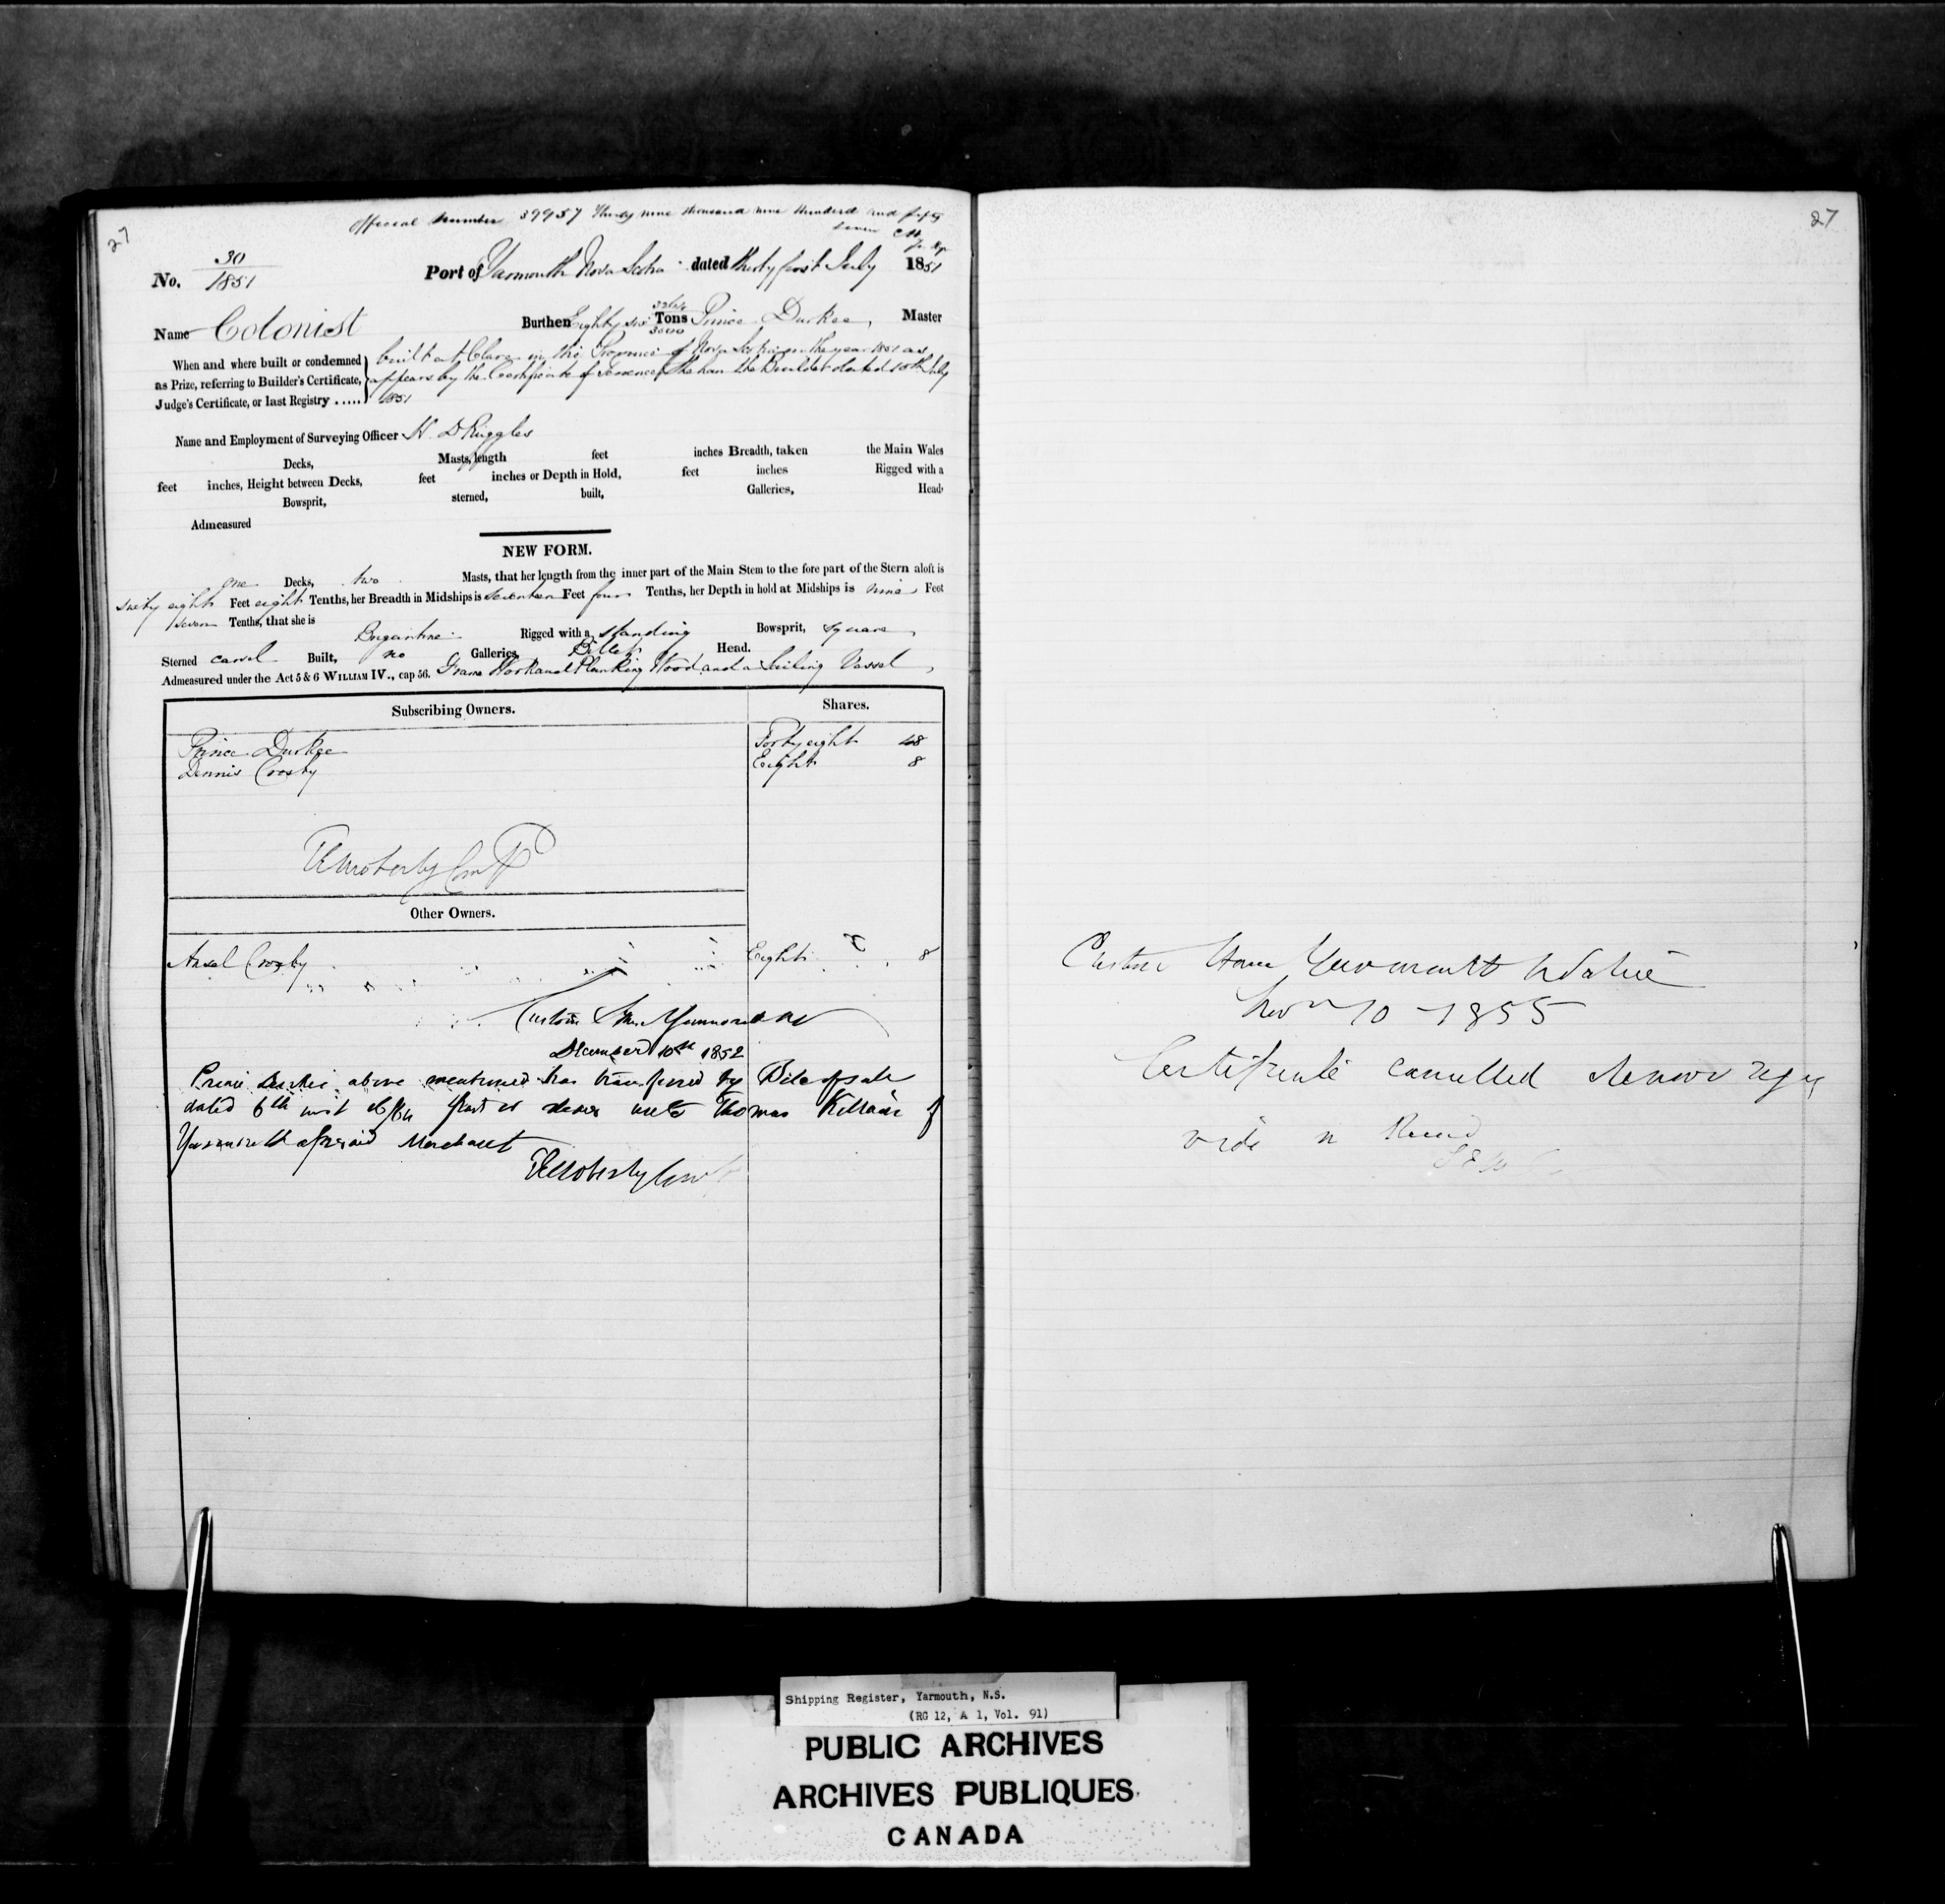 27
Official Number 39957 Thirty nine thousand nine hundred and fifty
seven
No. 30
1851
Port of Yarmouth Nova Scotia dated thirty first July 1851
Name Coloniest
Burthen Eighty six Tons Prince Durkee, Master
3000
When and where built or condemned
as Prize, referring to Builder's Certificate,
Judge's Certificate, or last Registry .....
built at Clare in the Province of Nova Scotia in the year 1851 as
appears by the Certificate of the Builder dated 15th July
1851
Name and Employment of Surveying Officer H. D Ruggles
Decks, Masts, length feet inches Breadth, taken the Main Wales
feet inches, Height between Decks, feet inches or Depth in Hold, feet inches Rigged with a
Bowsprit, sterned, built, Galleries, Head
Admeasured
NEW FORM.
one Decks, two Masts, that her length from the inner part of the Main Stem to the fore part of the Stern aloft is
sixty eight Feet eight Tenths, her Breadth in Midships is seventeen Feet four Tenths, her Depth in hold at Midships is nine Feet
seven Tenths, that she is
Brigantine Rigged with a standing Bowsprit, square
Sterned carvel Built, no Galleries, Billet Head.
Admeasured under the Act 5 & 6 WILLIAM IV., cap 56. Frame Work and Planking Wood and a Sailing Vessel,
Subscribing Owners. Shares.
Prince Durkee Forty eight 48
Dennis Crosby Eight 8
Moberly
Other Owners.
Ansel Crosby Eight 8
Custom House Yarmouth NS
December 10th 1852
Prince Durkee above mentioned has transferred by Bill of sale
dated 6th inst 16/64 part or shares unto Thomas Killam of
Yarmouth aforesaid Merchant
Moberly
27
Custom House Yarmouth N Scotia
Novr 10 1855
Certificate cancelled
vide
Shipping Register, Yarmouth, N.S.
(RG 12, A 1, Vol. 91)
PUBLIC ARCHIVES
ARCHIVES PUBLIQUES
CANADA